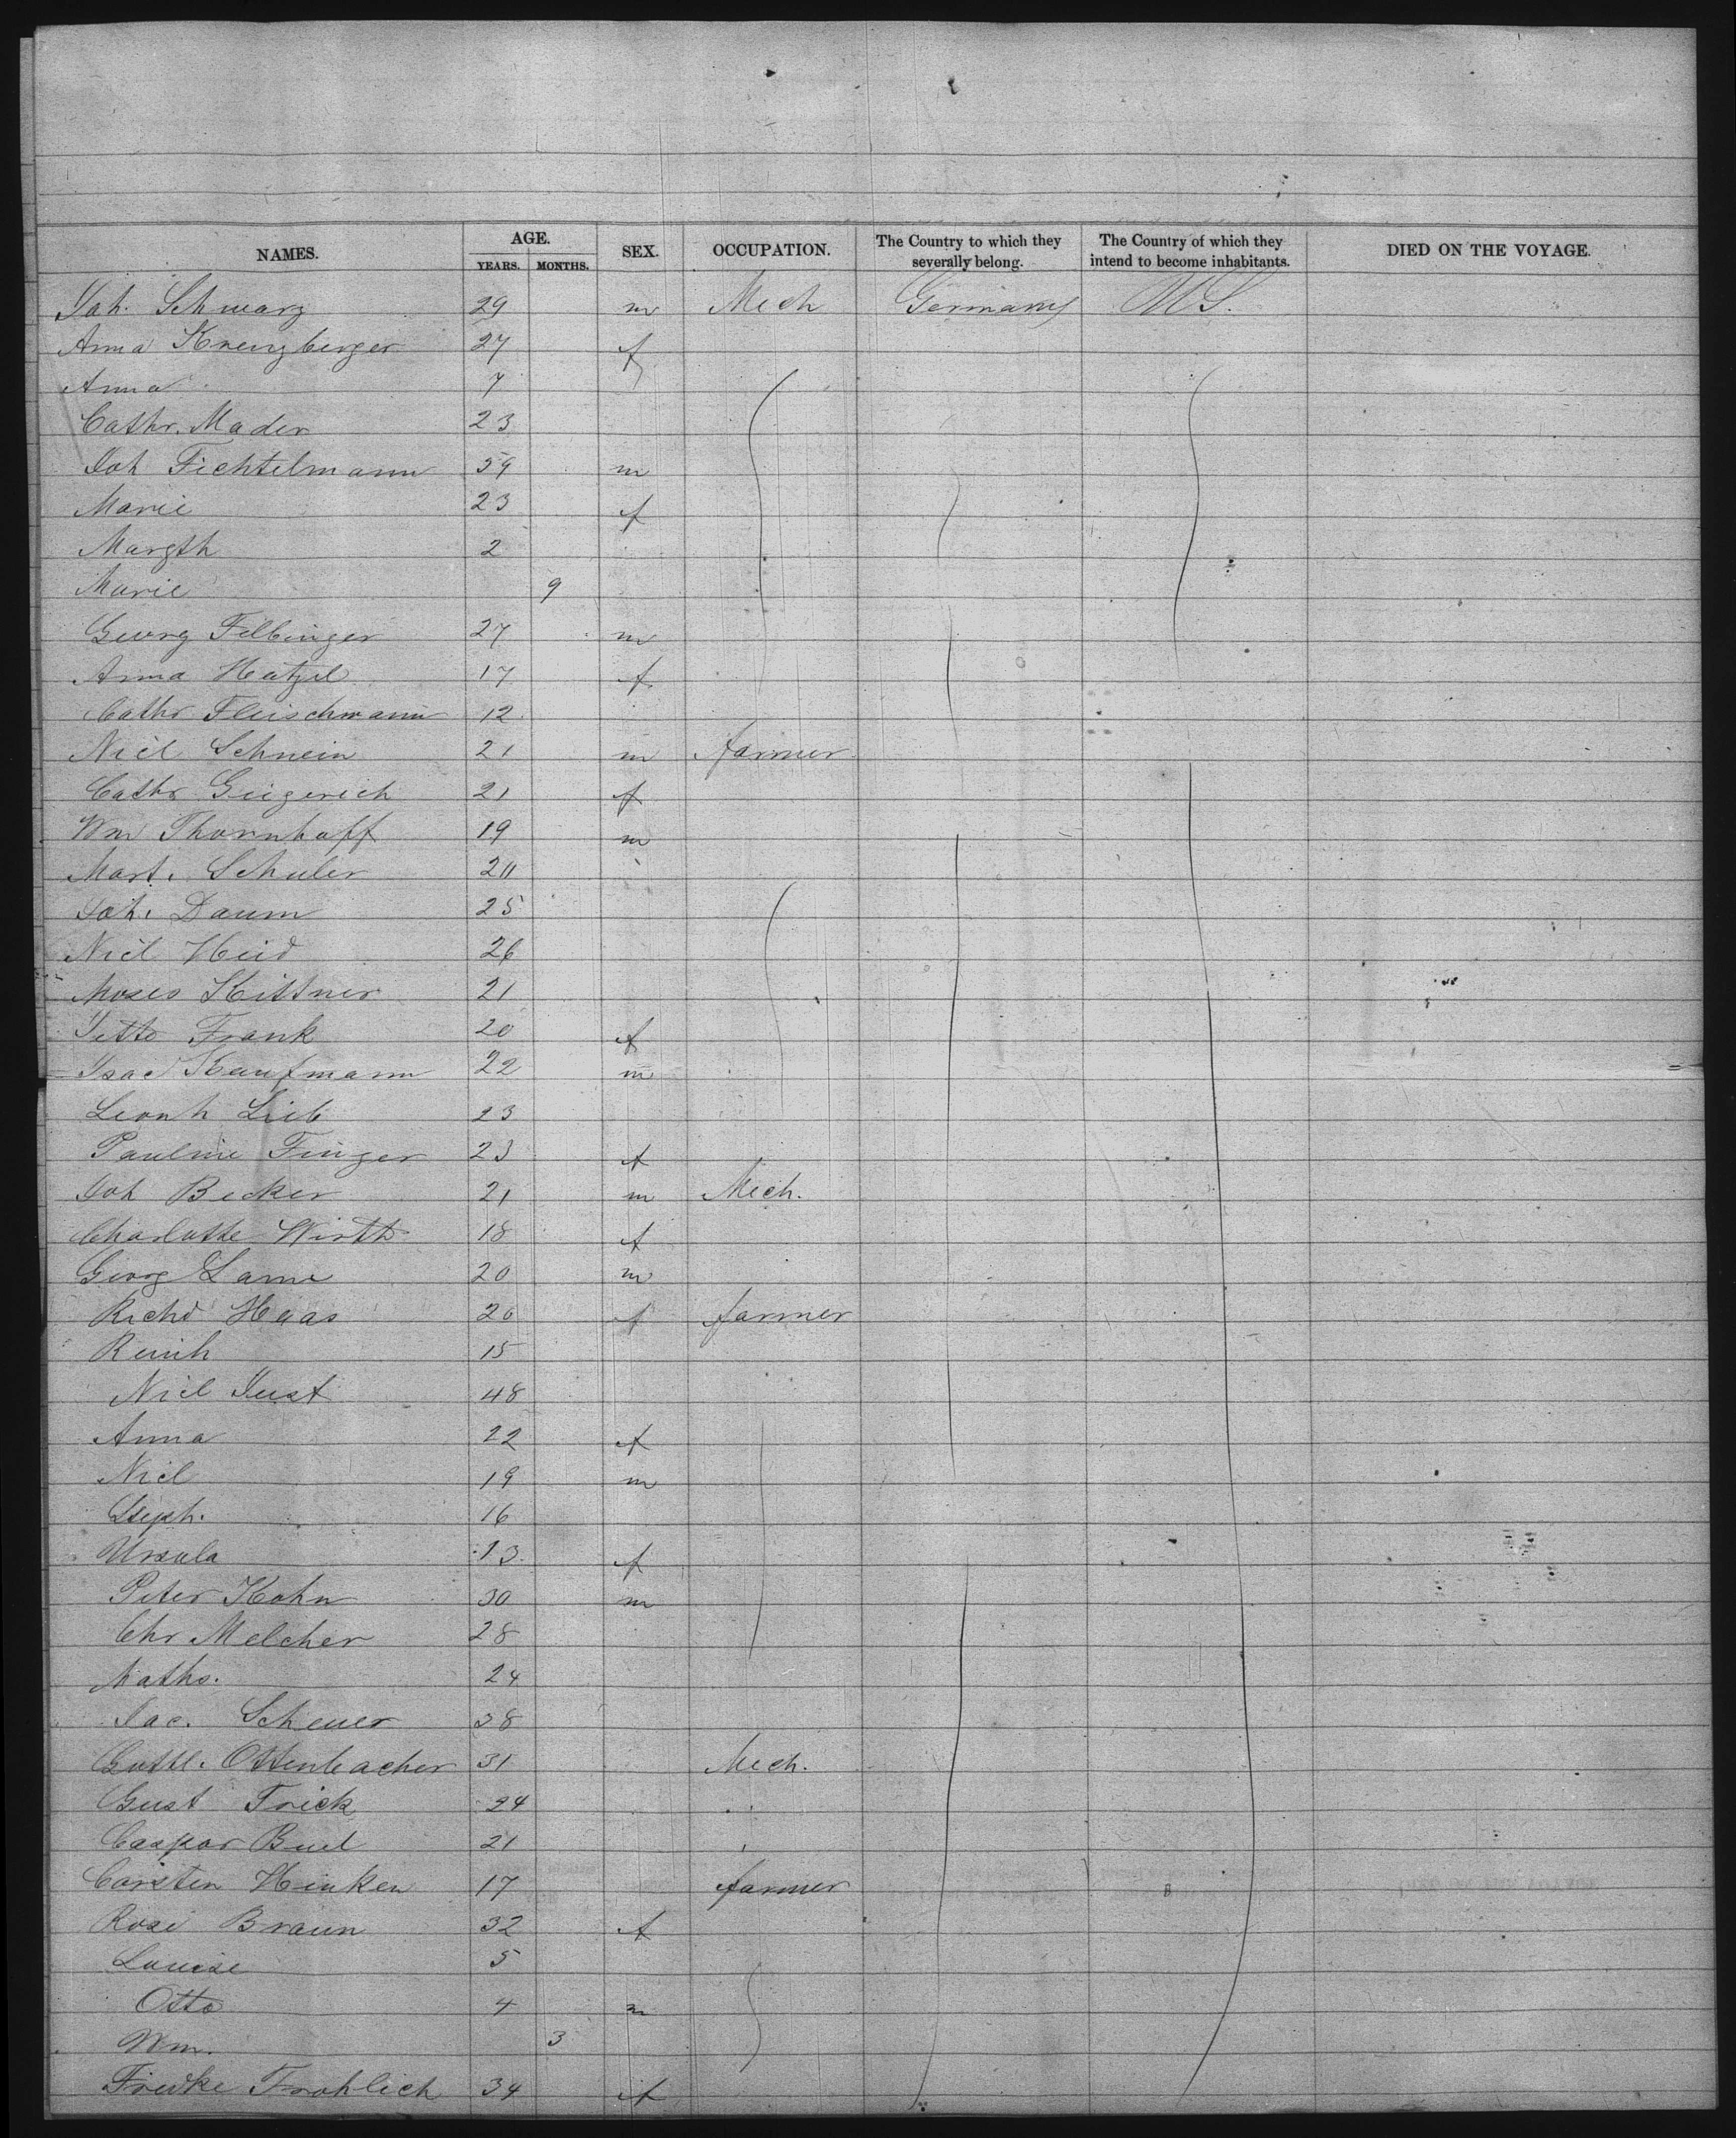 NAMES. AGE. SEX. OCCUPATION. The Country to which they severally belong. The Country of which they intend to become inhabitants. DIED ON THE VOYAGE.
YEARS. MONTHS.
Joh. Schwarz 29 m Mech Germany U S.
Anna Kreuzberger 27 f
Anna 7
Cathr. Mader 23
Joh Fichtelmann 59 m
Marie 23 f
Margth 2
Marie 9
Georg Felbinger 27 m
Anna Hetzel 17 f
Cathr Fleischmann 12
Nicl Schnein 21 m farmer
Cathr Geigerich 21 f
Wm Thornhoff 19 m
Mart. Schuler 20
Joh. Daum 25
Nicl Heid 26
Moses Kittner 21
Jette Frank 20 f
Isac Kaufmann 22 m
Leonh Lieb 23
Pauline Finger 23 f
Joh Becker 21 m Mech.
Charlotte Wirth 18 f
Georg 20 m
Richd Haas 20 f farmer
Reinh 15
Nicl Just 48
Anna 22 f
Nicl 19 m
Steph. 16
Ursula 13 f
Peter Hohn 30 m
Chr Melcher 28
Maths. 24
Jac. Scheuer 38
Gottl. Ottenbacher 31 Mech.
Gust Frick 24
Caspar 21
Carsten Hinken 17 farmer
Rosi Braun 32 f
Louise 5
Otto 4 m
Wm. 3
Friedke Frohlich 34 f